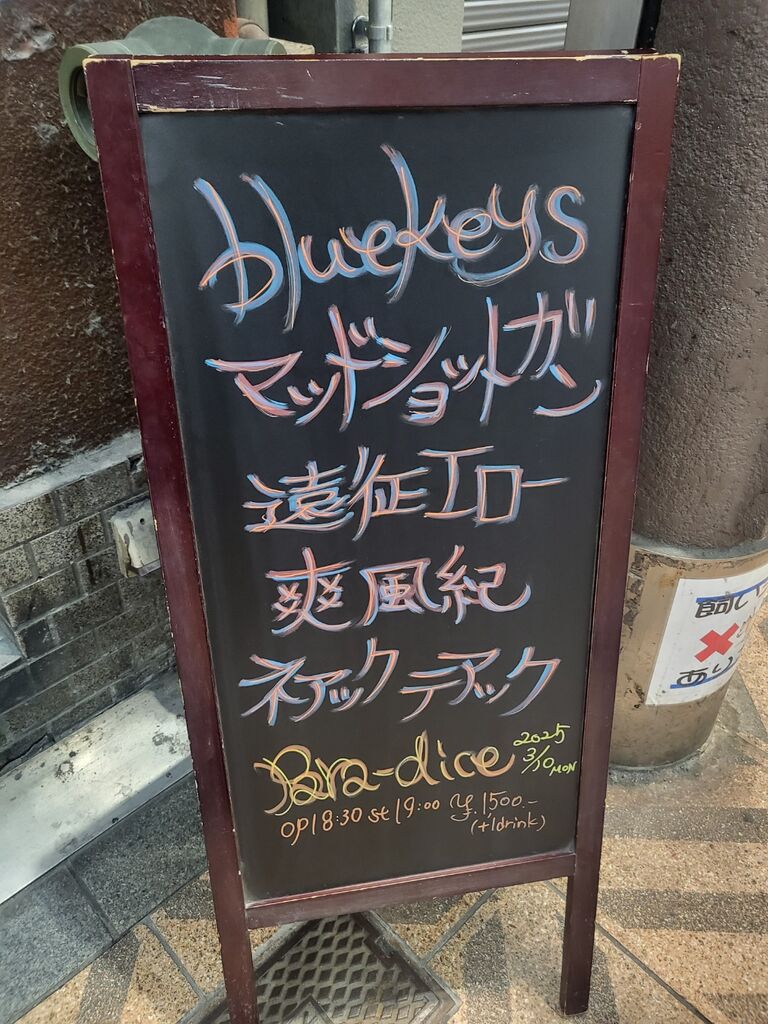 bluekeys
マッドショットガン
遠征エロー
爽風紀
ネアックテアック
Para-dice 2025 3/10 MON
op18:30 st19:00 ¥1500-
(+1drink)
飼い
あり